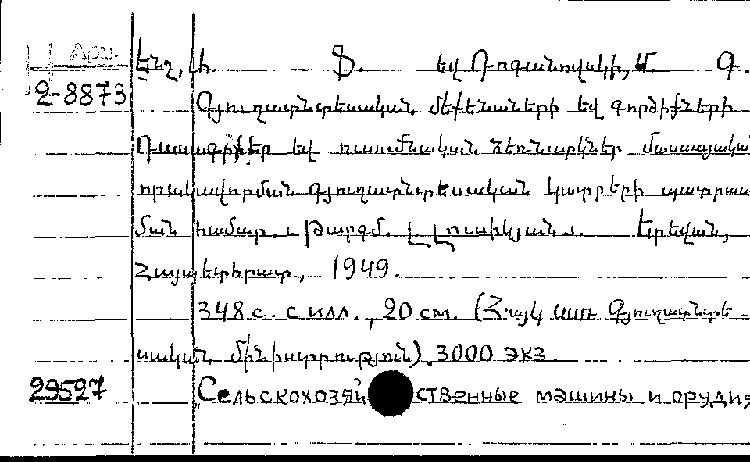 Арм.
Ենշ, Ի. Ֆ. եվ Դոգանովսկի, Մ. Գ.
2-8873
Գյուղատնտեսական մեքենաների եվ գործիքների
Դասագիրք եվ ուսումնական ձեռնարկներ մասսայակա
որակավորման գյուղատնտեսական կադրերի պատրաս
ման համար. Թարգմ. Լ. Լուսիկյան. Երեվան,
Հայպետհրատ, 1949.
348 с. с илл., 20 см. (Հայկ ՍՍՌ Գյուղատնտե-
սական մինիստրություն). 3000 экз
29527
Сельскохозяйственные машины и орудия